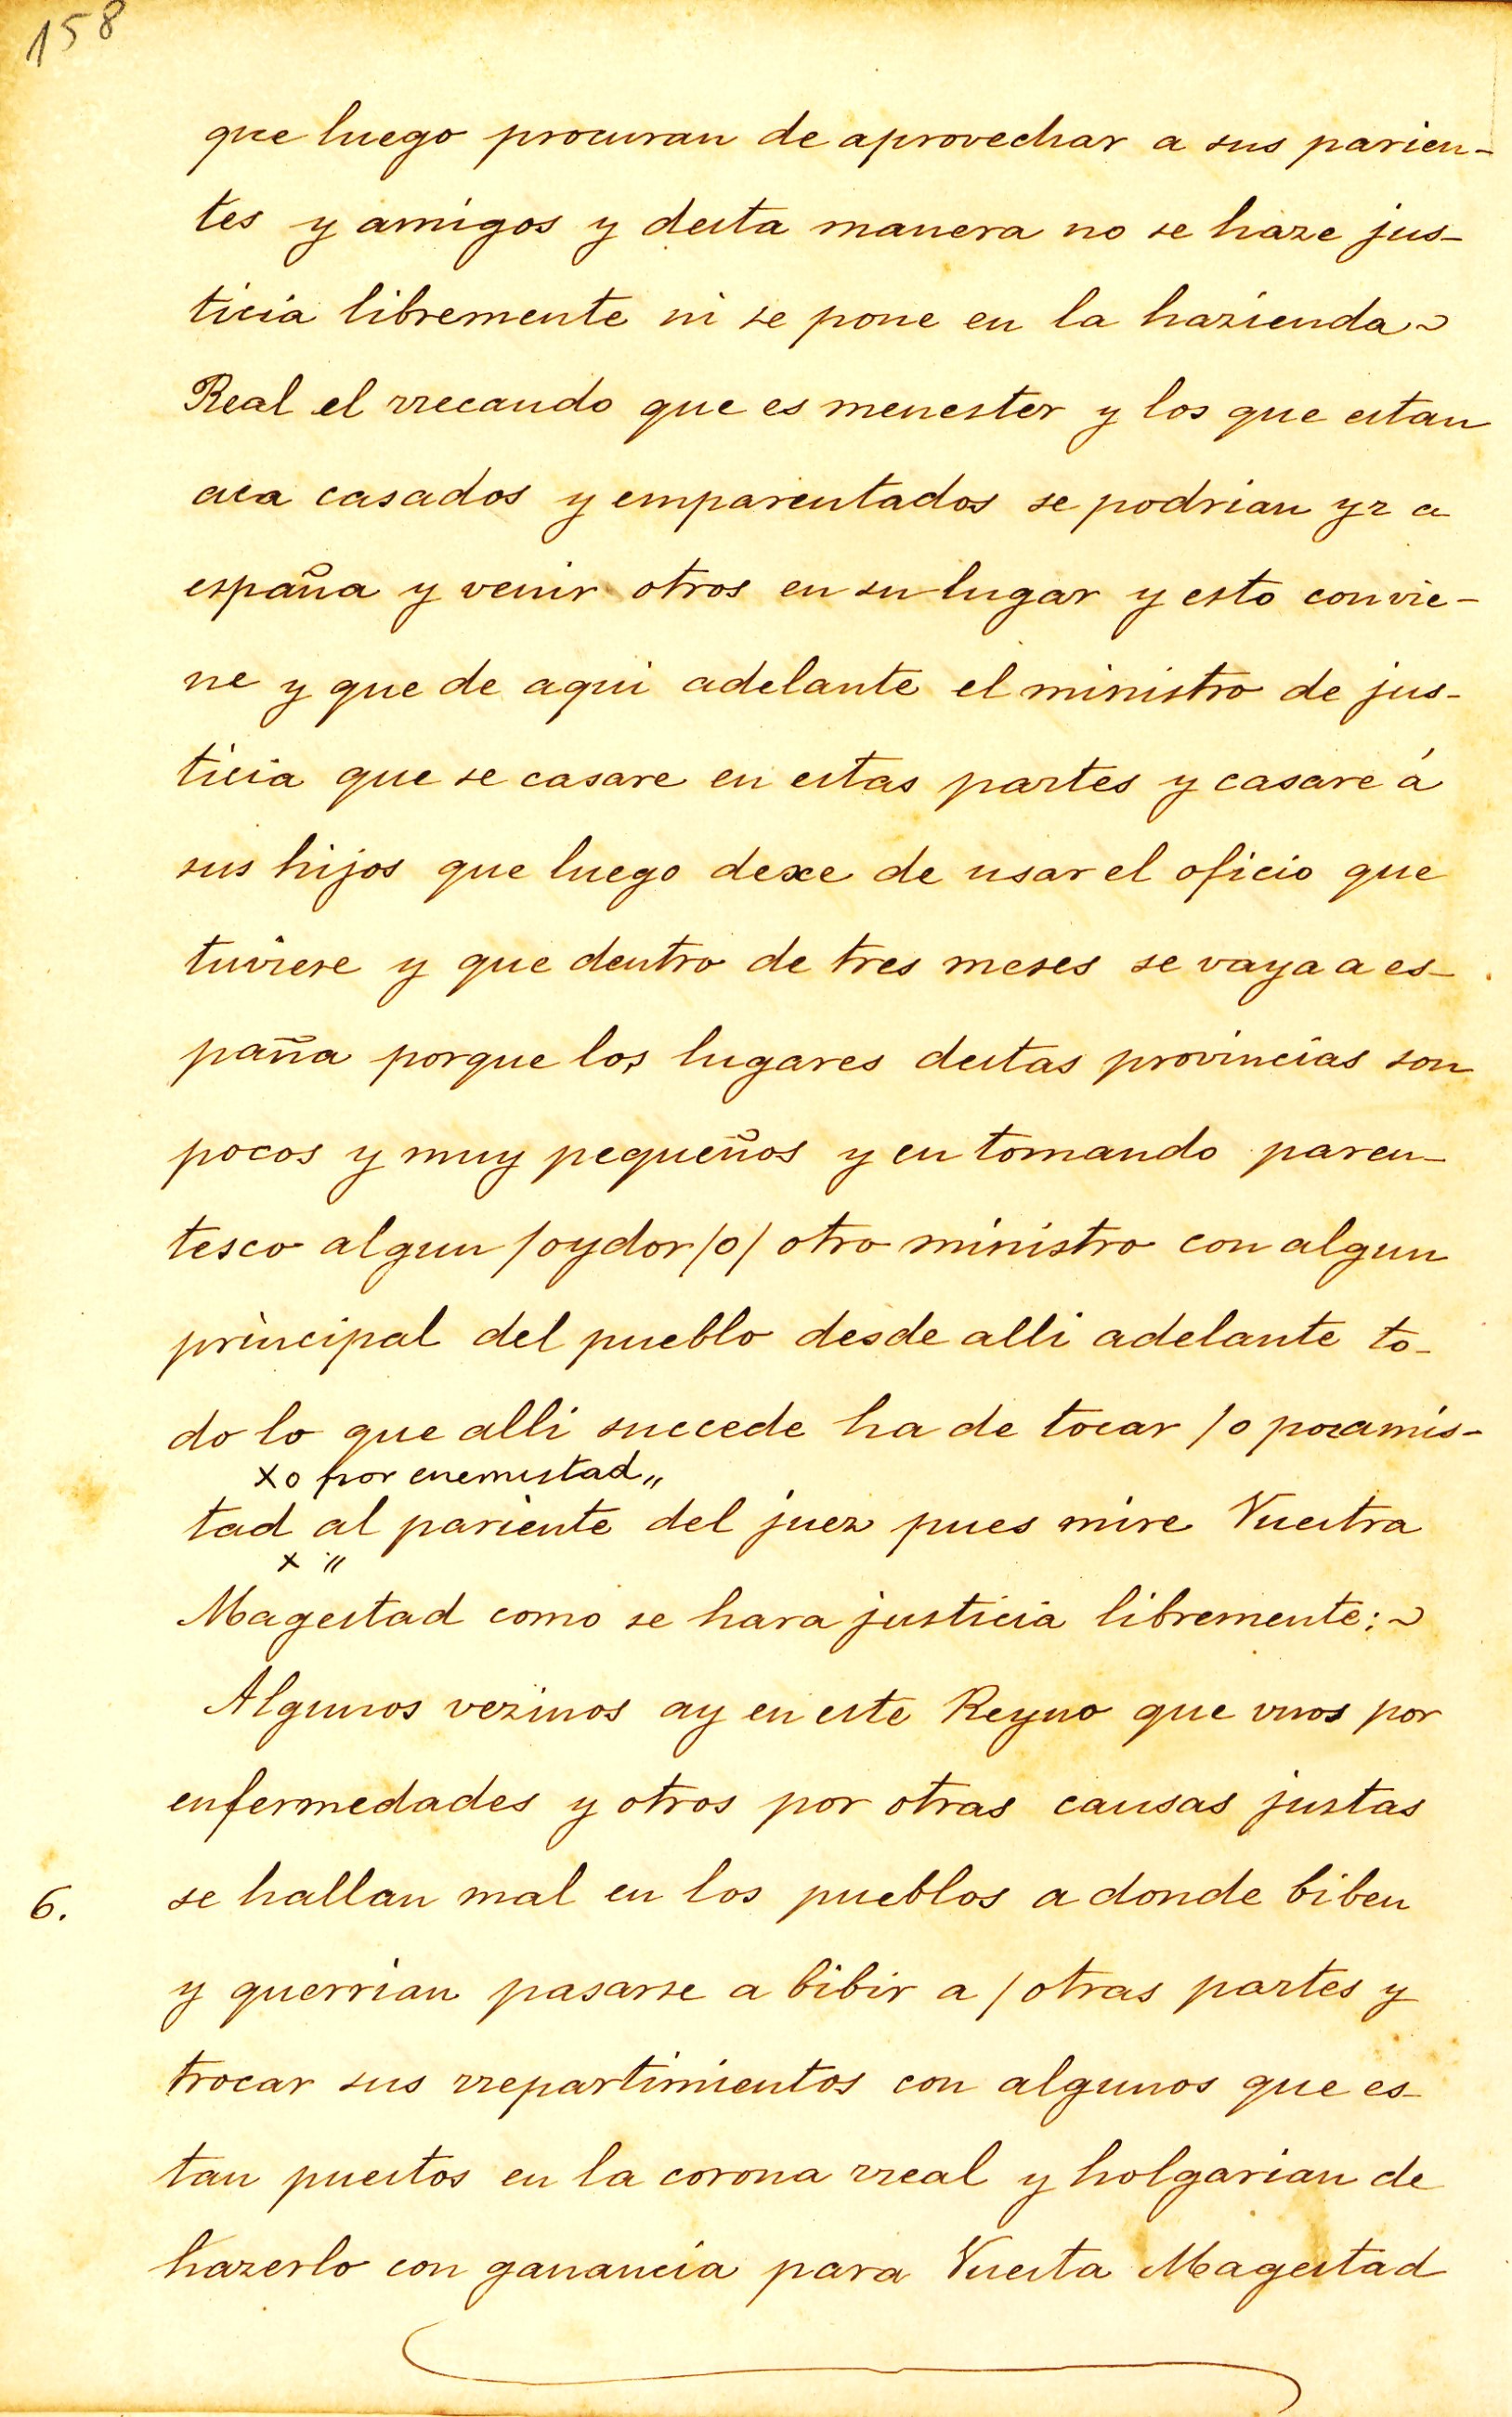 158
que luego procuran de aprovechar a sus parien-
tes y amigos y desta manera no se haze jus-
ticia libremente ni se pone en la hazienda~
Real el rrecaudo que es menester y los que estan
aca casados y emparentados se podrian yr a
españa y venir otros en su lugar y esto convie-
ne y que de aqui adelante el ministro de jus-
ticia que se casare en estas partes y casare á
sus hijos que luego dexe de usar el oficio que
tuviere y que dentro de tres meses se vaya a es-
paña porque los lugares destas provincias son
pocos y muy pequeños y en tomando paren-
tesco algun /oydor/o/ otro ministro con algun
principal del pueblo desde alli adelante to-
do lo que alli succede ha de tocar /o por amis-
x o por enemistad„
tad al pariente del juez pues mire Vuestra
x „
Magestad como se hara justicia libremente:~
Algunos vezinos ay en este Reyno que vnos por
enfermedades y otros por otras causas justas
6. se hallan mal en los pueblos a donde biben
y querrian pasarse a bibir a /otras partes y
trocar sus rrepartimientos con algunos que es-
tan puestos en la corona rreal y holgarian de
hazerlo con ganancia para Vuesta Magestad